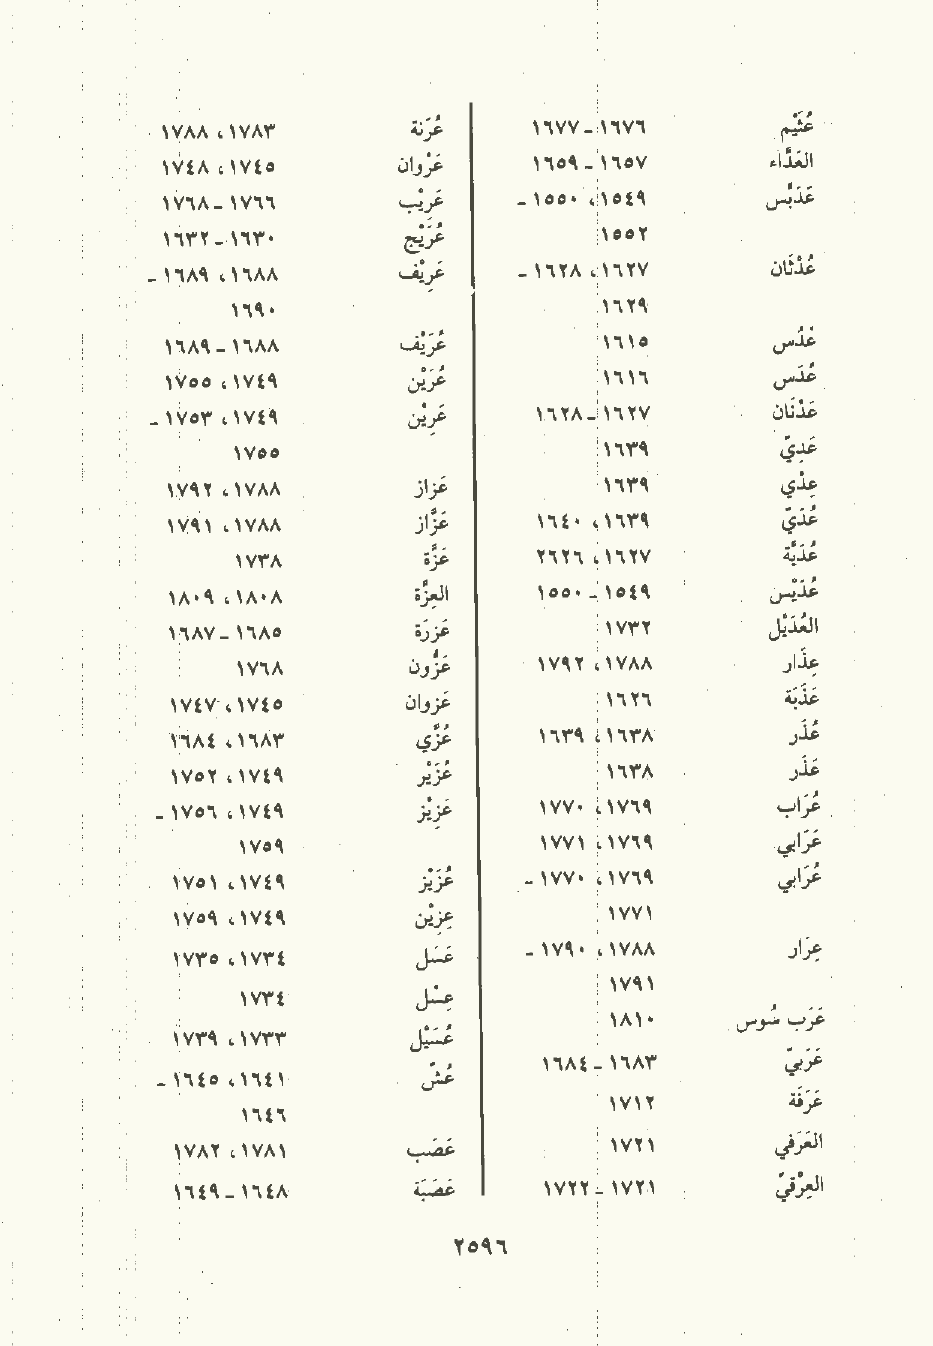 عُثَيْم ١٦٧٦ ـ ١٦٧٧
العَدَّاء ١٦٥٧ ـ ١٦٥٩
عَدَبَّس ١٥٤٩، ١٥٥٠ ـ
١٥٥٢
عُدْثَان ١٦٢٧، ١٦٢٨ ـ
١٦٢٩
عُدُس ١٦١٥
عُدَس ١٦١٦
عَدْنَان ١٦٢٧ ـ ١٦٢٨
عَدِيّ ١٦٣٩
عِدْي ١٦٣٩
عُدَيّ ١٦٣٩، ١٦٤٠
عُدَيَّة ١٦٢٧، ٢٦٢٦
عُدَيْس ١٥٤٩ ـ ١٥٥٠
العُدَيْل ١٧٣٢
عِذَار ١٧٨٨، ١٧٩٢
عَذَبَة ١٦٢٦
عُذَر ١٦٣٨، ١٦٣٩
عَذَر ١٦٣٨
عُرَاب ١٧٦٩، ١٧٧٠
عَرَابي ١٧٦٩، ١٧٧١
عُرَابي ١٧٦٩، ١٧٧٠ ـ
١٧٧١
عِرَار ١٧٨٨، ١٧٩٠ ـ
١٧٩١
عَرَب سُوس ١٨١٠
عَرَبيّ ١٦٨٣ ـ ١٦٨٤
عَرَفَة ١٧١٢
العَرَفي ١٧٢١
العِرْقيّ ١٧٢١ ـ ١٧٢٢
عُرَنة ١٧٨٣، ١٧٨٨
عَرْوان ١٧٤٥، ١٧٤٨
عَرِيْب ١٧٦٦ ـ ١٧٦٨
عُرَيْج ١٦٣٠ ـ ١٦٣٢
عَرِيْف ١٦٨٨، ١٦٨٩ ـ
١٦٩٠
عُرَيْف ١٦٨٨ ـ ١٦٨٩
عُرَيْن ١٧٤٩، ١٧٥٥
عَرِيْن ١٧٤٩، ١٧٥٣ ـ
١٧٥٥
عَزاز ١٧٨٨، ١٧٩٢
عَزَّاز ١٧٨٨، ١٧٩١
عَزَّة ١٧٣٨
العِزَّة ١٨٠٨، ١٨٠٩
عَزرَة ١٦٨٥ ـ ١٦٨٧
عَزُّون ١٧٦٨
عَزوان ١٧٤٥، ١٧٤٧
عُزَّي ١٦٨٣، ١٦٨٤
عُزَيْر ١٧٤٩، ١٧٥٢
عَزِيْز ١٧٤٩، ١٧٥٦ ـ
١٧٥٩
عُزَيْز ١٧٤٩، ١٧٥١
عِزِيْن ١٧٤٩، ١٧٥٩
عَسَل ١٧٣٤، ١٧٣٥
عِسْل ١٧٣٤
عُسَيْل ١٧٣٣، ١٧٣٩
عُسّ ١٦٤١، ١٦٤٥ ـ
١٦٤٦
عَصَب ١٧٨١، ١٧٨٢
عَصَبَة ١٦٤٨ ـ ١٦٤٩
٢٥٩٦